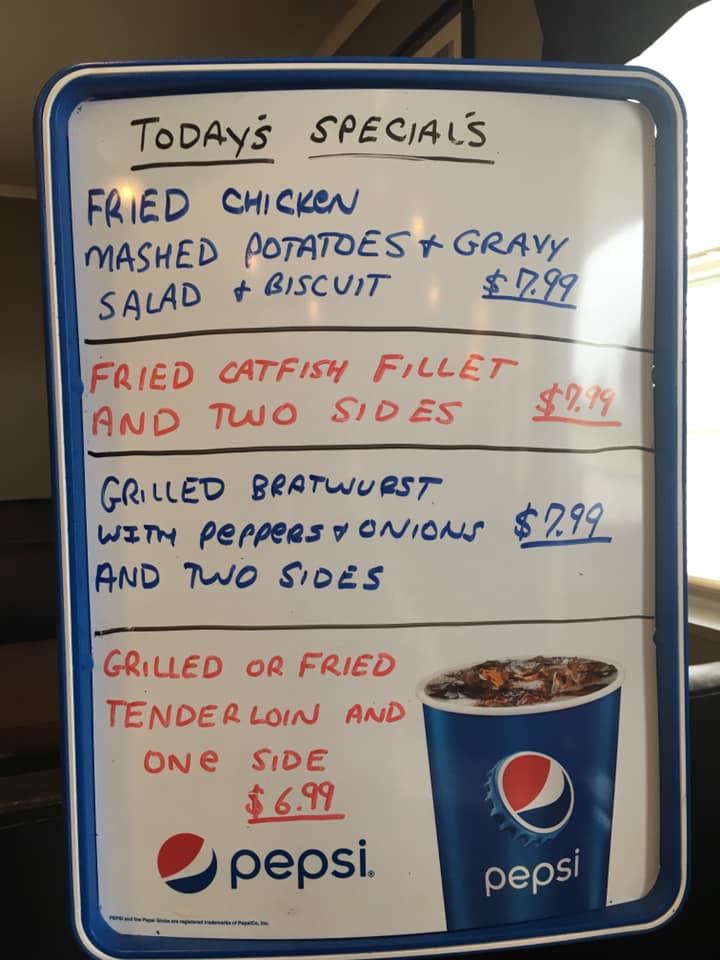 TODAY'S SPECIAL'S
FRIED CHICKEN
MASHED POTATOES + GRAVY
SALAD + BISCUIT $7.99
FRIED CATFISH FILLET
AND TWO SIDES $7.99
GRILLED BRATWURST
WITH PEPPERS & ONIONS $7.99
AND TWO SIDES
GRILLED OR FRIED
TENDERLOIN AND
ONE SIDE
$6.99
pepsi.
pepsi
PEPSI and the Pepsi Globe are registered trademarks of PepsiCo, Inc.